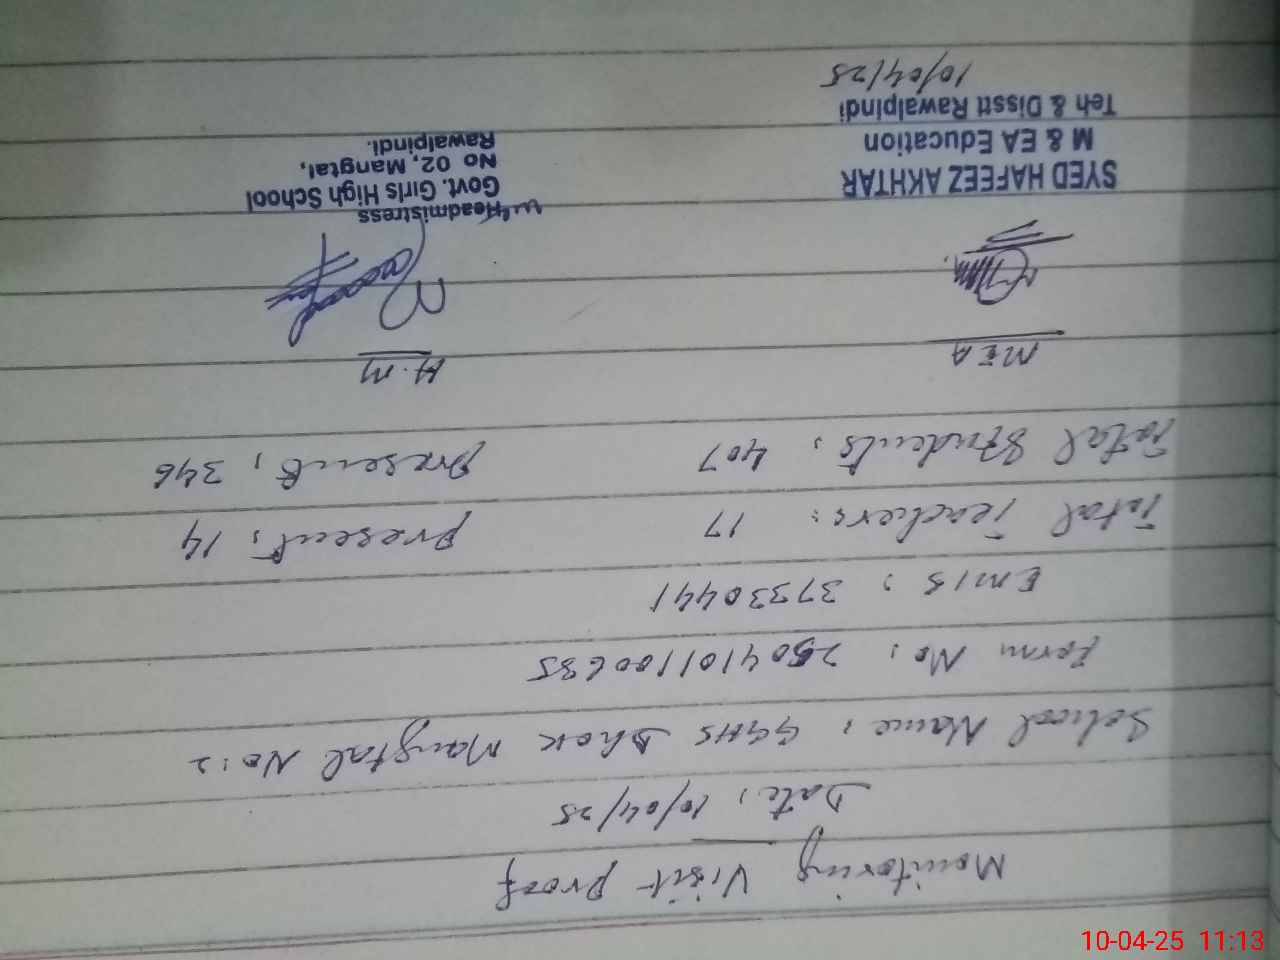 Monitoring Visit Proof
Date: 10/04/25
School Name: GGHS Dhok Mangtal No:2
Form No: 2504101100635
Emis: 37330441
Total Teachers: 17 Present: 14
Total Students: 407 Present: 346
MEA H.M
SYED HAFEEZ AKHTAR
M & EA Education
Teh & Disstt Rawalpindi
10/04/25
Headmistress
Govt. Girls High School
No 02, Mangtal,
Rawalpindi.
10-04-25 11:13